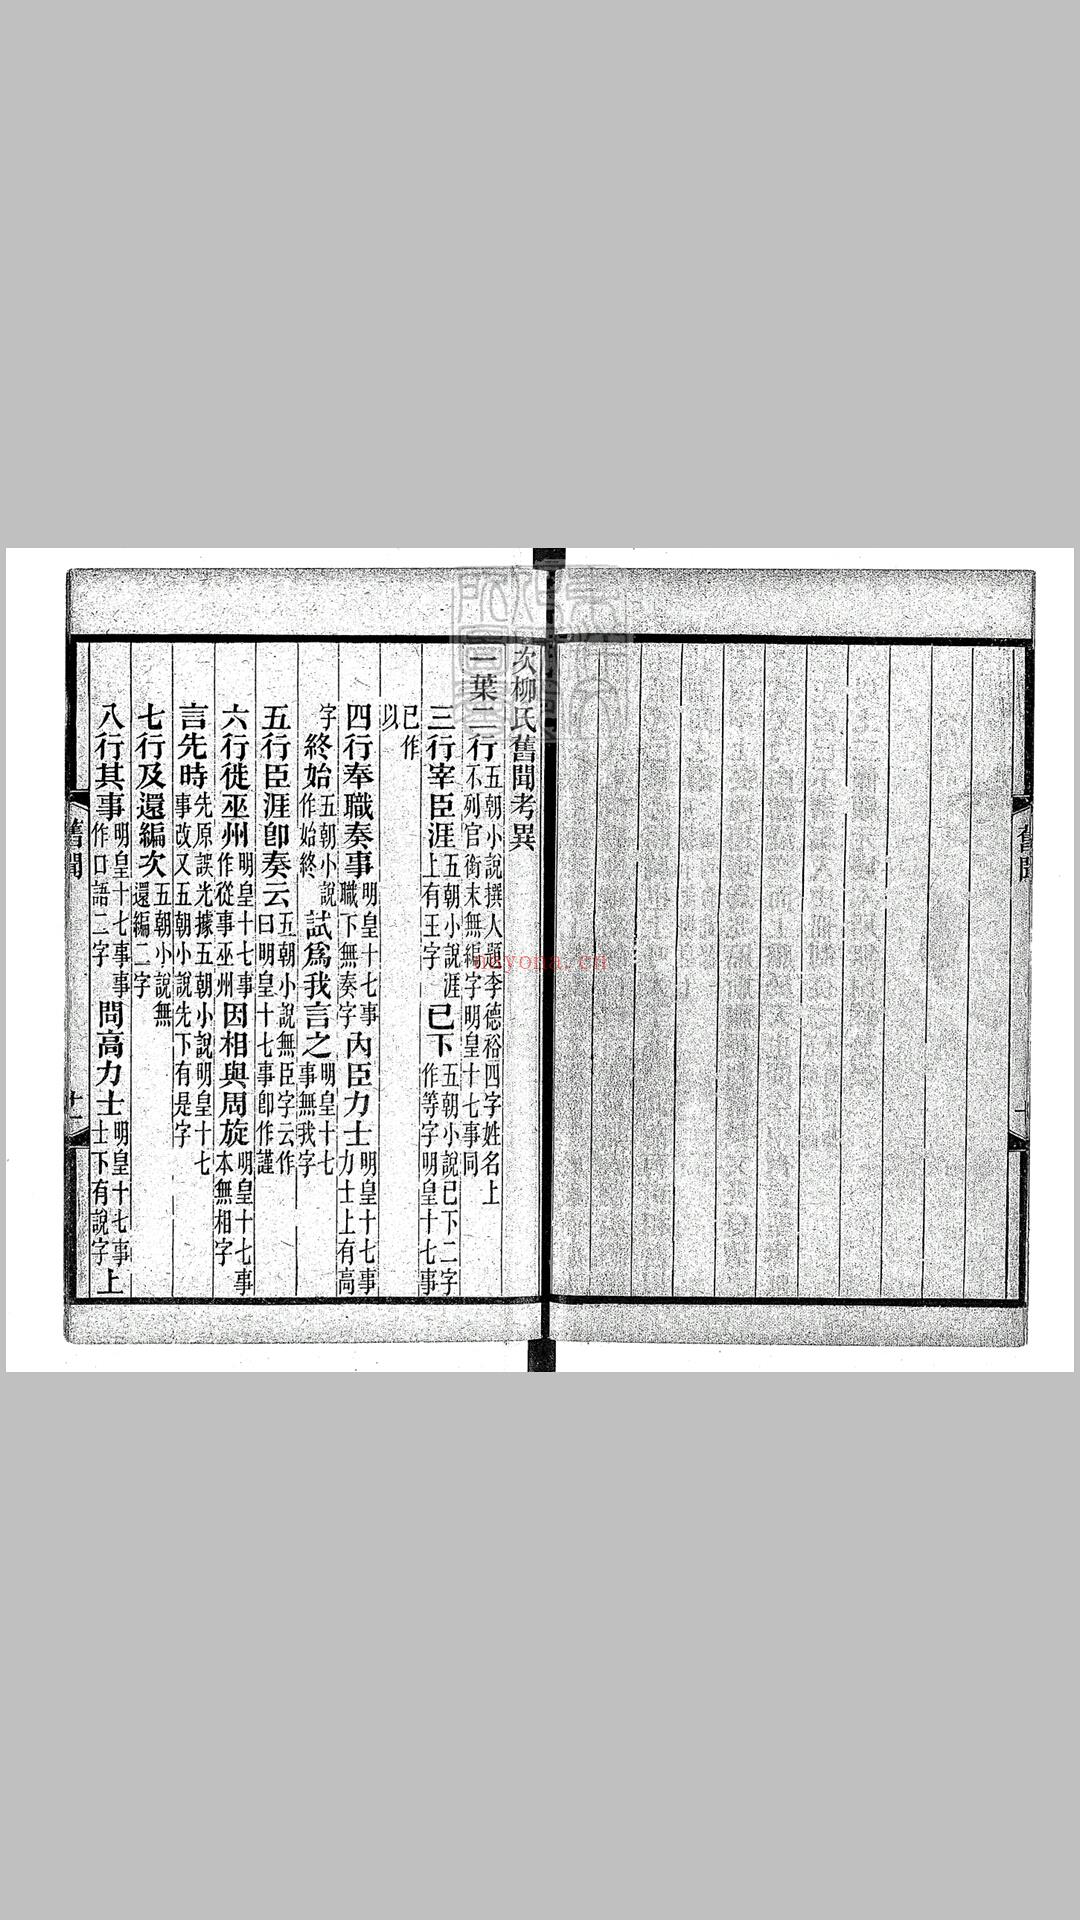 次柳氏舊聞考異
一葉二行五朝小說撰人題李德裕四字姓名上不列官銜末無編字明皇十七事同
三行宰臣涯五朝小說涯上有王字已下五朝小說已下二字作等字明皇十七事
已作以
四行奉職奏事明皇十七事職下無奏字內臣力士明皇十七事力士上有高
字終始五朝小說作始終試爲我言之明皇十七事無我字
五行臣涯卽奏云五朝小說無臣字云作曰明皇十七事卽作謹
六行徙巫州明皇十七事作從事巫州因相與周旋明皇十七事本無相字
言先時先原誤光據五朝小說明皇十七事改又五朝小說先下有是字
七行及還編次五朝小說無還編二字
八行其事明皇十七事事作口語二字問高力士明皇十七事士下有說字上
舊聞
十一
舊聞
nayona.cn